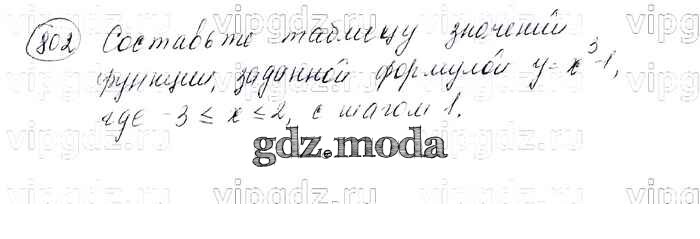 vipgdz.ru vipgdz.ru vipgdz.ru vipgdz.ru
802 Составьте таблицу значений
функции, заданной формулой y = x³-1,
где -3 ≤ x ≤ 2, с шагом 1.
vipgdz.ru vipgdz.ru vipgdz.ru vipgdz.ru
gdz.moda
vipgdz.ru vipgdz.ru vipgdz.ru vipgdz.ru